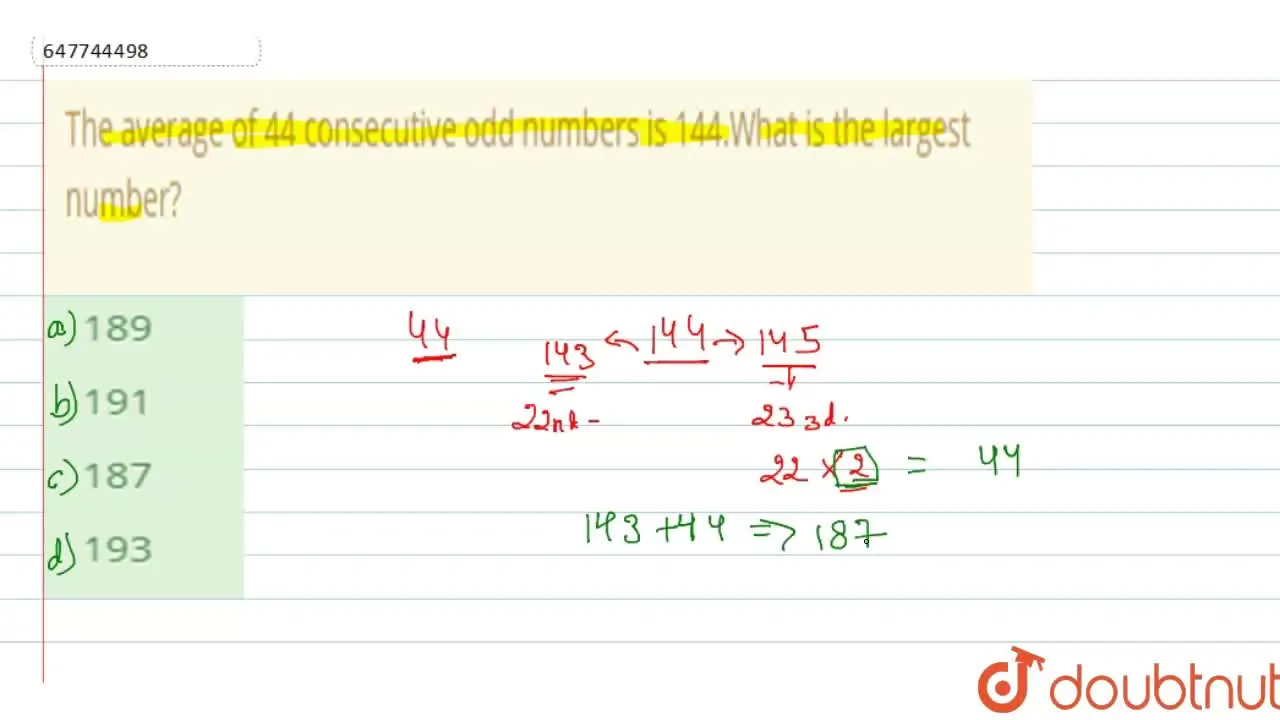 647744498
The average of 44 consecutive odd numbers is 144.What is the largest
number?
a) 189
b) 191
c) 187
d) 193
44
143 ← 144 → 145
22nd - 23 3d.
22 × 2 = 44
143 + 44 ⇒ 187
doubtnut